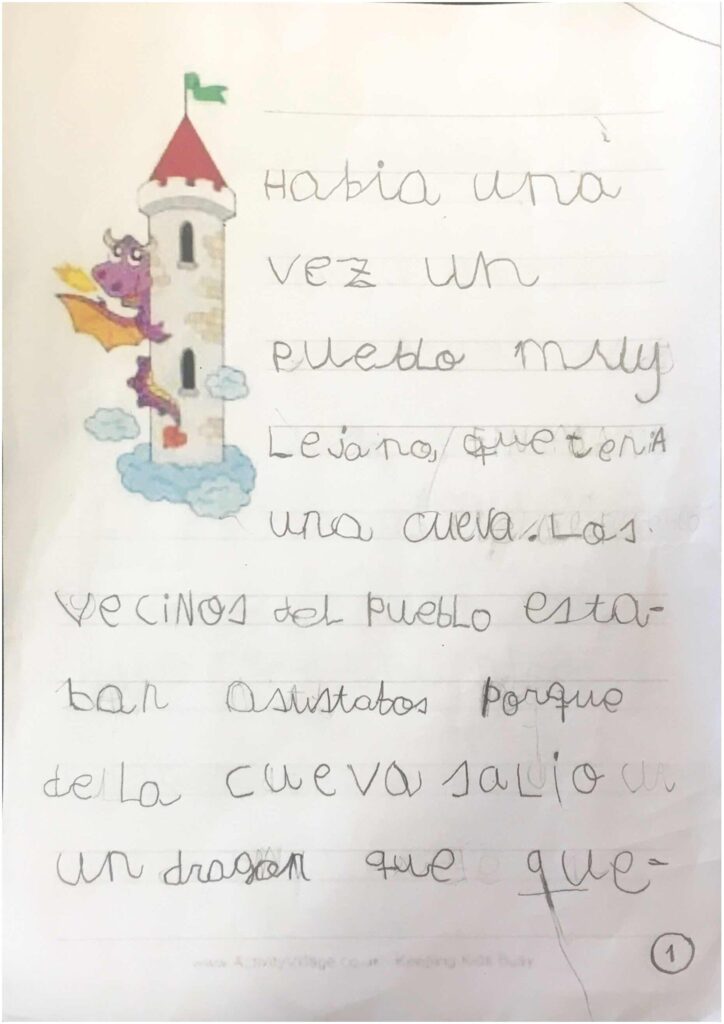 Habia una
vez un
pueblo muy
Lejano, que teniA
una cueva. Los
veciNos del pueblo esta-
ban asustabos porque
de la cueva salio un
un dragon que que-
www.ActivityVillage.co.uk - Keeping Kids Busy
1